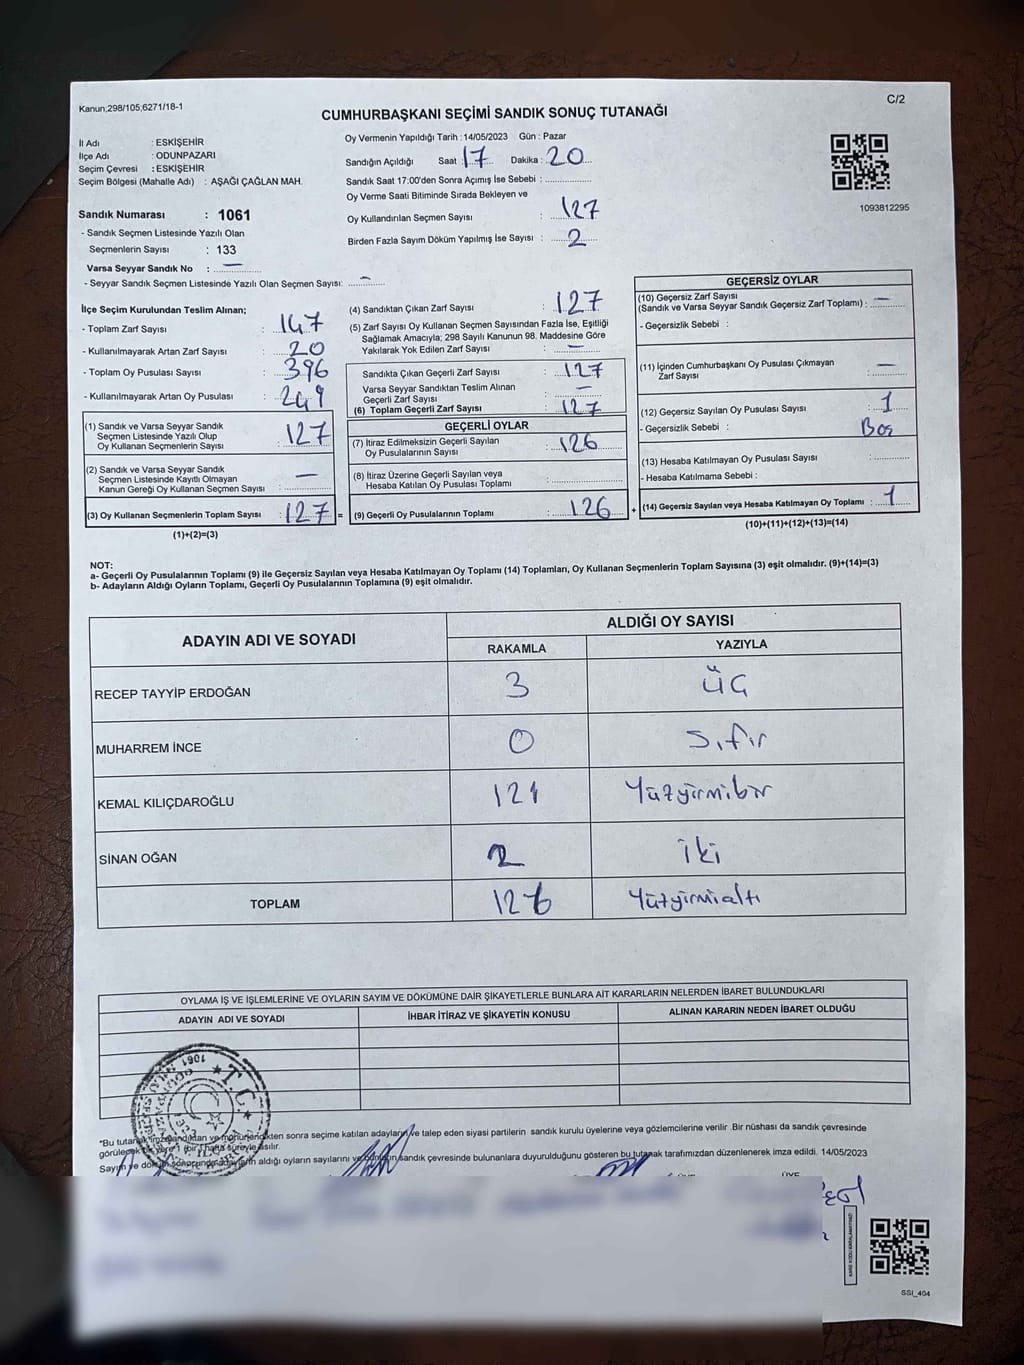 Kanun,298/105,6271/18-1
C/2
CUMHURBAŞKANI SEÇİMİ SANDIK SONUÇ TUTANAĞI
İl Adı : ESKİŞEHİR
İlçe Adı : ODUNPAZARI
Seçim Çevresi : ESKİŞEHİR
Seçim Bölgesi (Mahalle Adı) : AŞAĞI ÇAĞLAN MAH.
Sandık Numarası : 1061
- Sandık Seçmen Listesinde Yazılı Olan
Seçmenlerin Sayısı : 133
Varsa Seyyar Sandık No : —
- Seyyar Sandık Seçmen Listesinde Yazılı Olan Seçmen Sayısı: —
Oy Vermenin Yapıldığı Tarih : 14/05/2023 Gün : Pazar
Sandığın Açıldığı Saat : 17 Dakika : 20
Sandık Saat 17:00'den Sonra Açımış İse Sebebi : ..............
Oy Verme Saati Bitiminde Sırada Bekleyen ve
Oy Kullandırılan Seçmen Sayısı : 127
Birden Fazla Sayım Döküm Yapılmış İse Sayısı : 2
1093812295
İlçe Seçim Kurulundan Teslim Alınan;
- Toplam Zarf Sayısı : 147
- Kullanılmayarak Artan Zarf Sayısı : 20
- Toplam Oy Pusulası Sayısı : 396
- Kullanılmayarak Artan Oy Pusulası : 249
(1) Sandık ve Varsa Seyyar Sandık
Seçmen Listesinde Yazılı Olup
Oy Kullanan Seçmenlerin Sayısı : 127
(2) Sandık ve Varsa Seyyar Sandık
Seçmen Listesinde Kayıtlı Olmayan
Kanun Gereği Oy Kullanan Seçmen Sayısı : —
(3) Oy Kullanan Seçmenlerin Toplam Sayısı : 127 =
(1)+(2)=(3)
(4) Sandıktan Çıkan Zarf Sayısı : 127
(5) Zarf Sayısı Oy Kullanan Seçmen Sayısından Fazla İse, Eşitliği
Sağlamak Amacıyla; 298 Sayılı Kanunun 98. Maddesine Göre
Yakılarak Yok Edilen Zarf Sayısı : —
Sandıkta Çıkan Geçerli Zarf Sayısı : 127
Varsa Seyyar Sandıktan Teslim Alınan
Geçerli Zarf Sayısı : —
(6) Toplam Geçerli Zarf Sayısı : 127
GEÇERLİ OYLAR
(7) İtiraz Edilmeksizin Geçerli Sayılan
Oy Pusulalarının Sayısı : 126
(8) İtiraz Üzerine Geçerli Sayılan veya
Hesaba Katılan Oy Pusulaları Toplamı : ..............
(9) Geçerli Oy Pusulalarının Toplamı : 126 +
GEÇERSİZ OYLAR
(10) Geçersiz Zarf Sayısı
(Sandık ve Varsa Seyyar Sandık Geçersiz Zarf Toplamı) : —
- Geçersizlik Sebebi :
(11) İçinden Cumhurbaşkanı Oy Pusulası Çıkmayan
Zarf Sayısı : —
(12) Geçersiz Sayılan Oy Pusulası Sayısı : 1
- Geçersizlik Sebebi : Boş
(13) Hesaba Katılmayan Oy Pusulası Sayısı : ..............
- Hesaba Katılmama Sebebi :
(14) Geçersiz Sayılan veya Hesaba Katılmayan Oy Toplamı : 1
(10)+(11)+(12)+(13)=(14)
NOT:
a- Geçerli Oy Pusulalarının Toplamı (9) ile Geçersiz Sayılan veya Hesaba Katılmayan Oy Toplamı (14) Toplamları, Oy Kullanan Seçmenlerin Toplam Sayısına (3) eşit olmalıdır. (9)+(14)=(3)
b- Adayların Aldığı Oyların Toplamı, Geçerli Oy Pusulalarının Toplamına (9) eşit olmalıdır.
ADAYIN ADI VE SOYADI ALDIĞI OY SAYISI
RAKAMLA YAZIYLA
RECEP TAYYİP ERDOĞAN 3 üç
MUHARREM İNCE 0 sıfır
KEMAL KILIÇDAROĞLU 121 Yüzyirmibir
SİNAN OĞAN 2 iki
TOPLAM 126 Yüzyirmialtı
OYLAMA İŞ VE İŞLEMLERİNE VE OYLARIN SAYIM VE DÖKÜMÜNE DAİR ŞİKAYETLERLE BUNLARA AİT KARARLARIN NELERDEN İBARET BULUNDUKLARI
ADAYIN ADI VE SOYADI İHBAR İTİRAZ VE ŞİKAYETİN KONUSU ALINAN KARARIN NEDEN İBARET OLDUĞU
T.C.
1061
*Bu tutanak imzalandıktan ve mühürlendikten sonra seçime katılan adayların ve talep eden siyasi partilerin sandık kurulu üyelerine veya gözlemcilerine verilir .Bir nüshası da sandık çevresinde
görülecek bir yere 1 (bir) hafta süreyle asılır.
Sayım ve döküm sonucunda adayların aldığı oyların sayılarını ve sandık çevresinde bulunanlara duyurulduğunu gösteren bu tutanak tarafımızdan düzenlenerek imza edildi. 14/05/2023
ÜYE
SSI_404